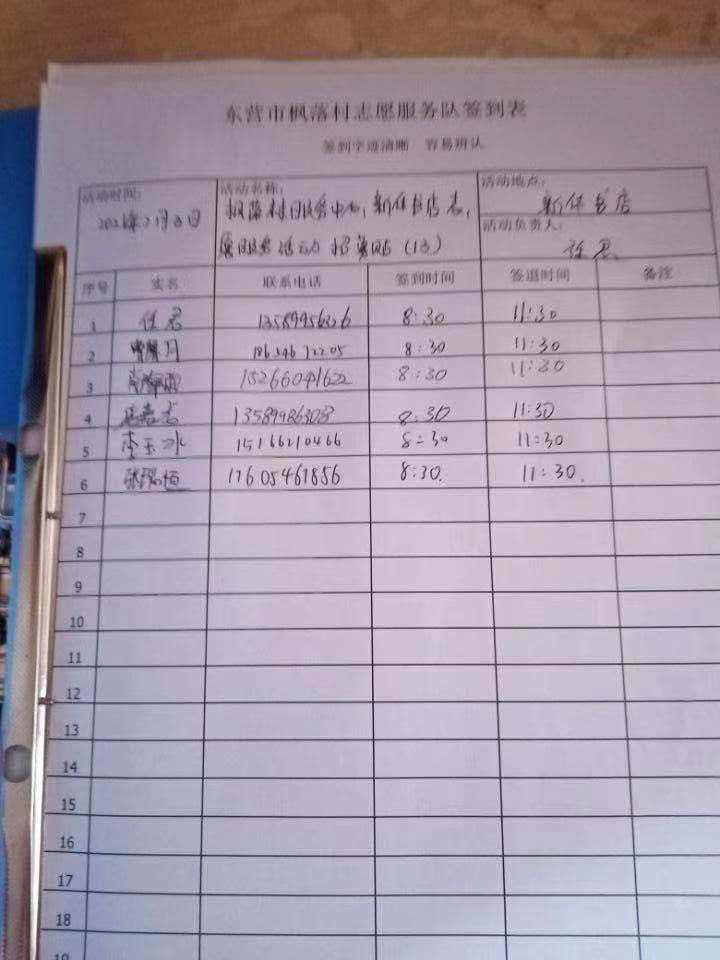 东营市枫落村志愿服务队签到表
签到字迹清晰 容易辨认
活动时间: 活动名称: 活动地点:
枫落村服务中心,新华书店志, 新华书店
愿服务活动招募贴(13) 活动负责人:
任君
序号 实名 联系电话 签到时间 签退时间 备注
1 任君 8:30 11:30
2 8:30 11:30
3 15266041622 8:30 11:30
4 8:30 11:30
5 李玉冰 15166210466 8:30 11:30
6 张瑞恒 17605461856 8:30. 11:30.
7
8
9
10
11
12
13
14
15
16
17
18
19